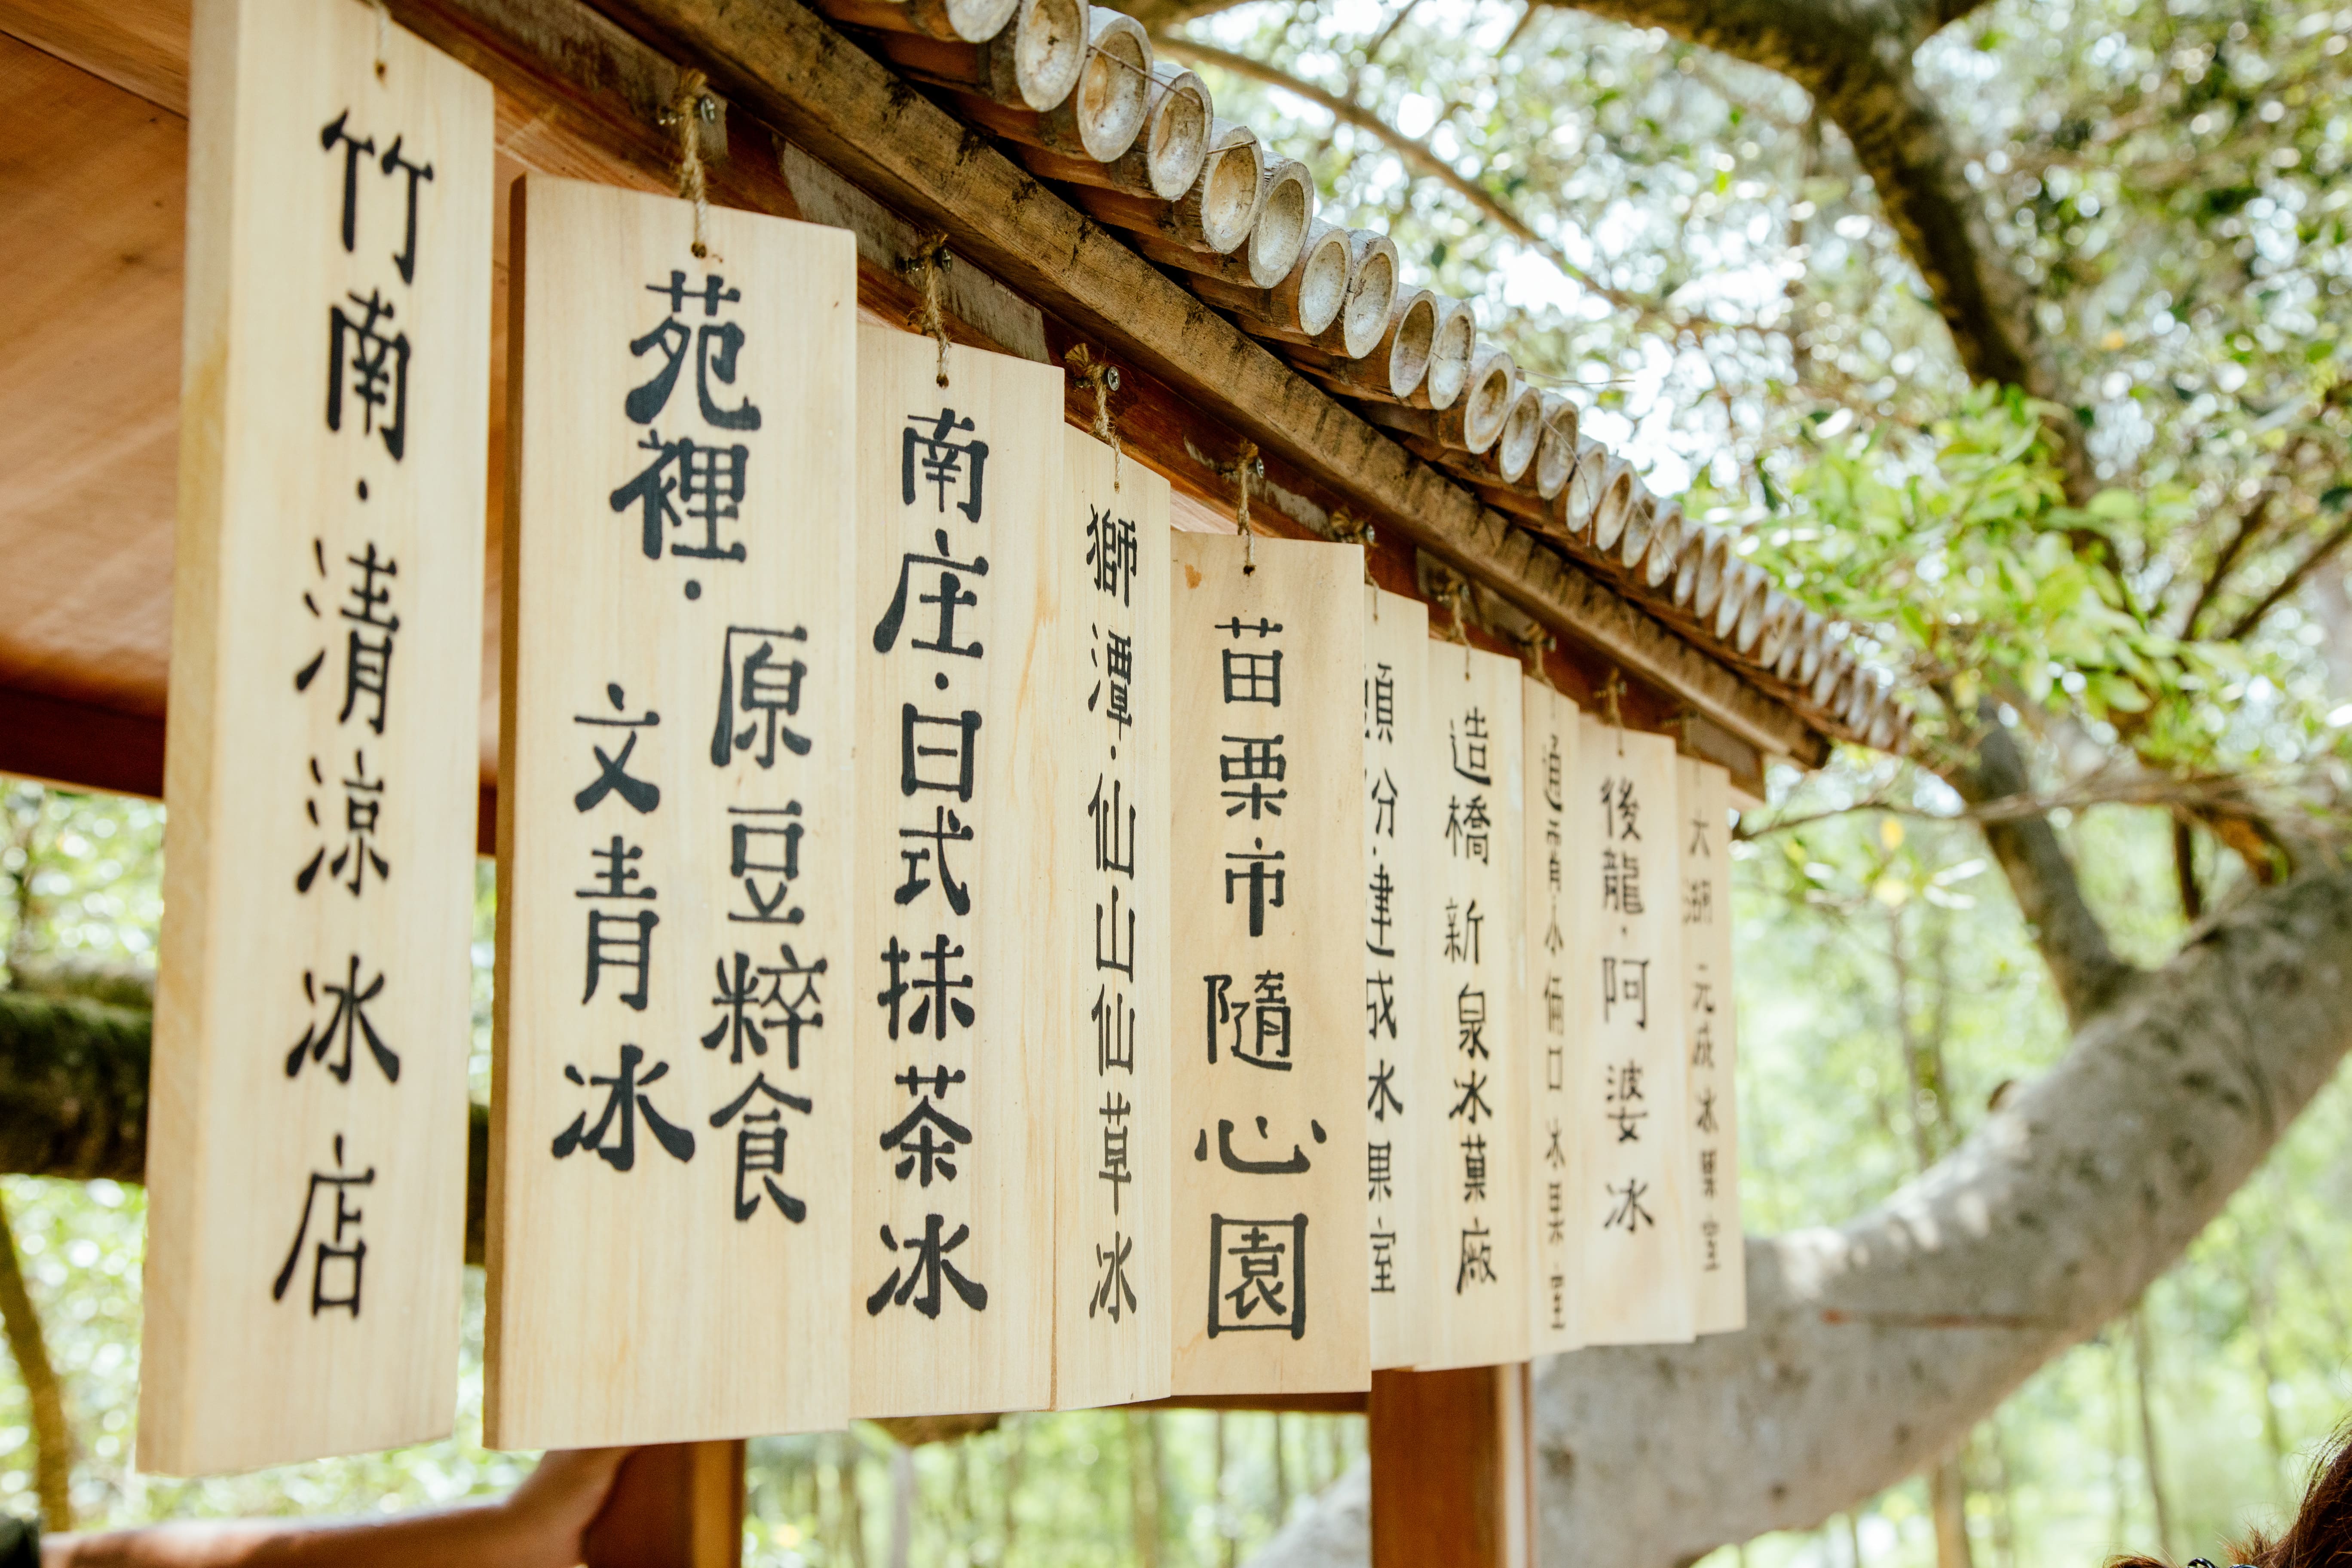 竹南·清涼冰店
苑裡·原豆粹食
文青冰
南庄·日式抹茶冰
獅潭·仙山仙草冰
苗栗市隨心園
頭份·建成冰果室
造橋新泉冰菓廠
通霄小俩口冰果室
後龍·阿婆冰
大湖元成冰果室